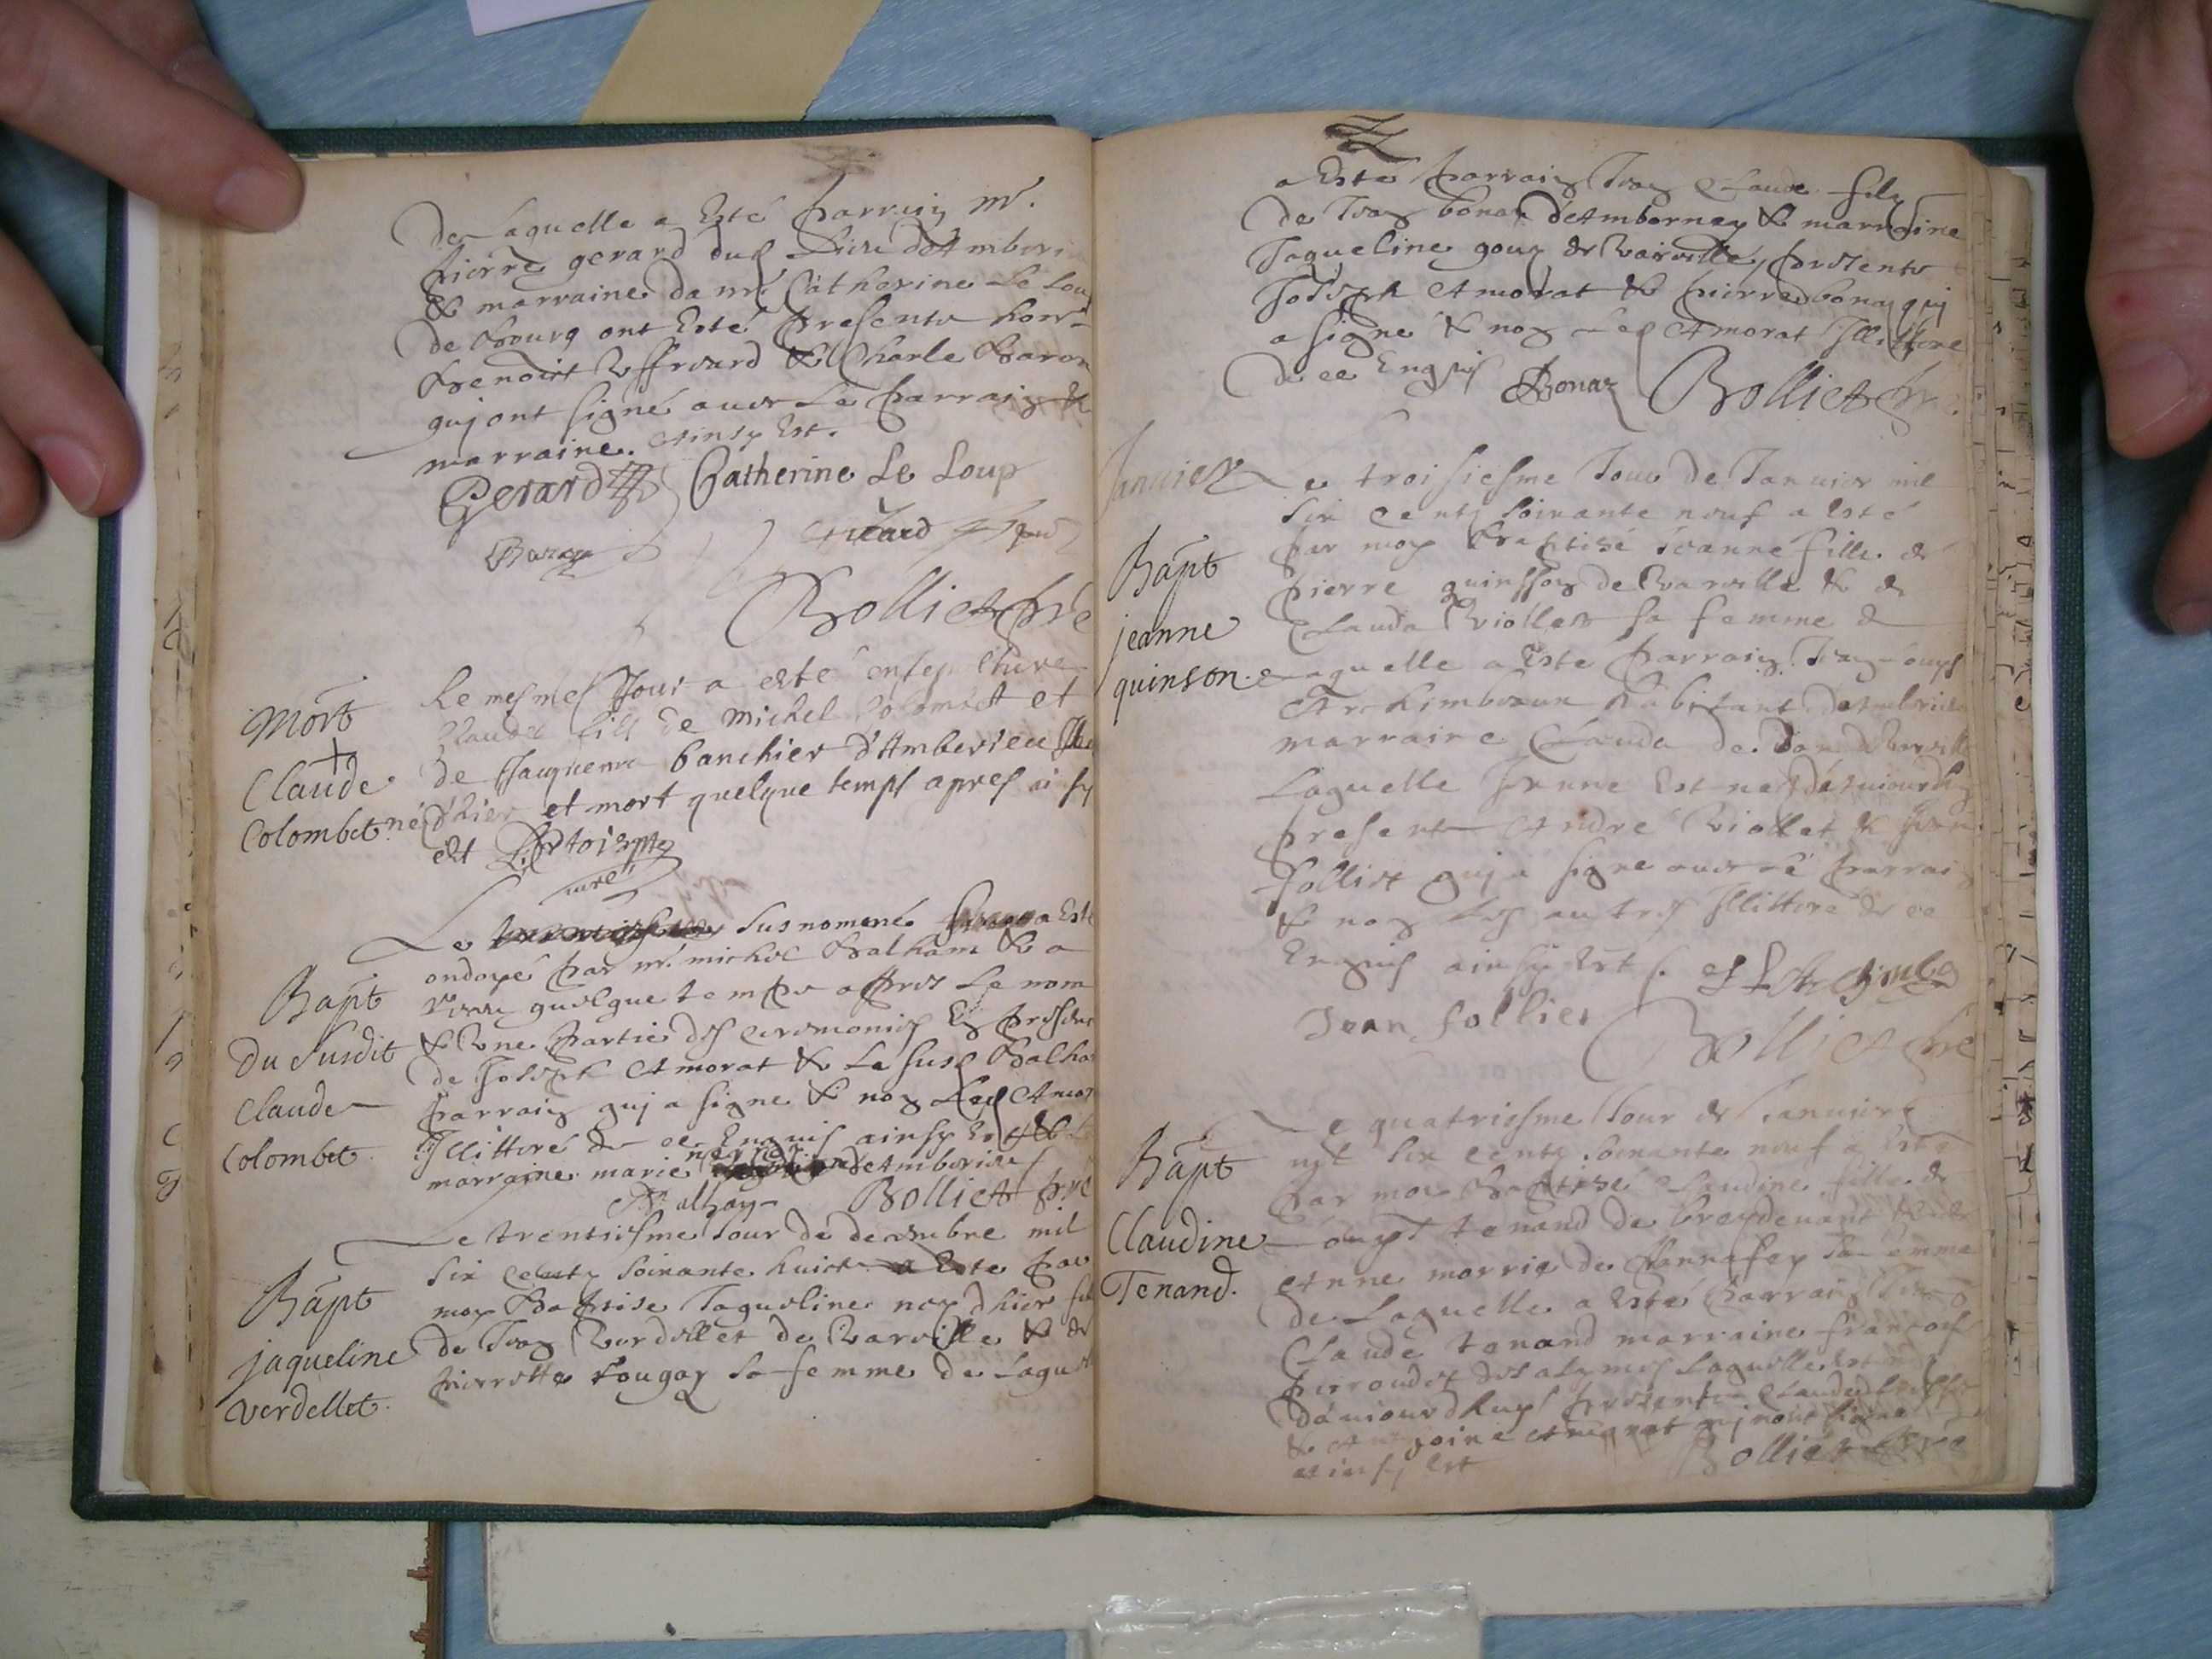 de Laquelle a Esté parrain mr.
pierre gerard dud Lieu d'Amberi
& marraine dame Catherine Le Lou
de Bourg ont Esté presents hon
Benoist & Charle Baron
qui ont signé avec Le parrain &
marraine. Ainsy Est.
Gerard Catherine Le Loup
Baron
Bolliet pre
Mort
Claude
Colombet
Le mesme Jour a esté ensepulturé
Claude fils de Michel Colombet et
de Jacquema banchier d'Amberieu
né d'hier et mort quelque temps apres ainsy
est
curé
Bapt
du susdit
Claude
Colombet
Le susnommé a Esté
ondoyé par mr. michel Balham & a
receu quelque temps apres Le nom
& Une partie des ceremonies En presence
de Joseph Amorat & Le susd Balha
parrain qui a signé & non Led Amor
Illitteré de ce Enquis ainsy Est &
marraine marie d'Amberieu
Balhan Bolliet pre
Bapt
jaqueline
verdellet
Le trentiesme Jour de decembre mil
six centz soixante huict a Esté par
moy Baptisé Jaqueline nee d'hier fil
de Jean Verdellet de Vareille & de
pierrette fougay sa femme de Laquel
a Esté parrain Jean Claude filz
de Jean bonaz d'Ambornay & marraine
Jaqueline gouz de Vareille, presents
Joseph Amorat & pierre bonaz qui
a signé & non Led Amorat Illitteré
de ce Enquis Bonaz Bolliet pre
Januier
Bapt
jeanne
quinson
Le troisiesme Jour de Januier mil
six centz soixante neuf a Esté
par moy Baptisé Jeanne fille de
pierre quinsson de Vareille & de
Clauda Viollet sa femme de
Laquelle a Esté parrain Jean Louys
Archimbaux habitant d'Amberieu
marraine Clauda de dom de Vareille
Laquelle Jeanne Est nee d'aujourdhuy
presents Andre Viollet & Jean
follier qui a signé avec Le parrain
& non Les autres Illitteré de ce
Enquis ainsy Est.
Jean follier
Bolliet pre
Bapt
Claudine
Tenand.
Le quatriesme Jour de Januier
mil six centz soixante neuf a Esté
par moy Baptisé Claudine fille de
Louys tenand de breydenant & de
Anne morrie de sa femme
de Laquelle a Esté parrain Jean
Claude tenand marraine françoise
perroudet des alymes Laquelle Est nee
d'aujourdhuy presents Claude
& Anthoine Amorat qui n'ont signé
ainsy Est Bolliet pre